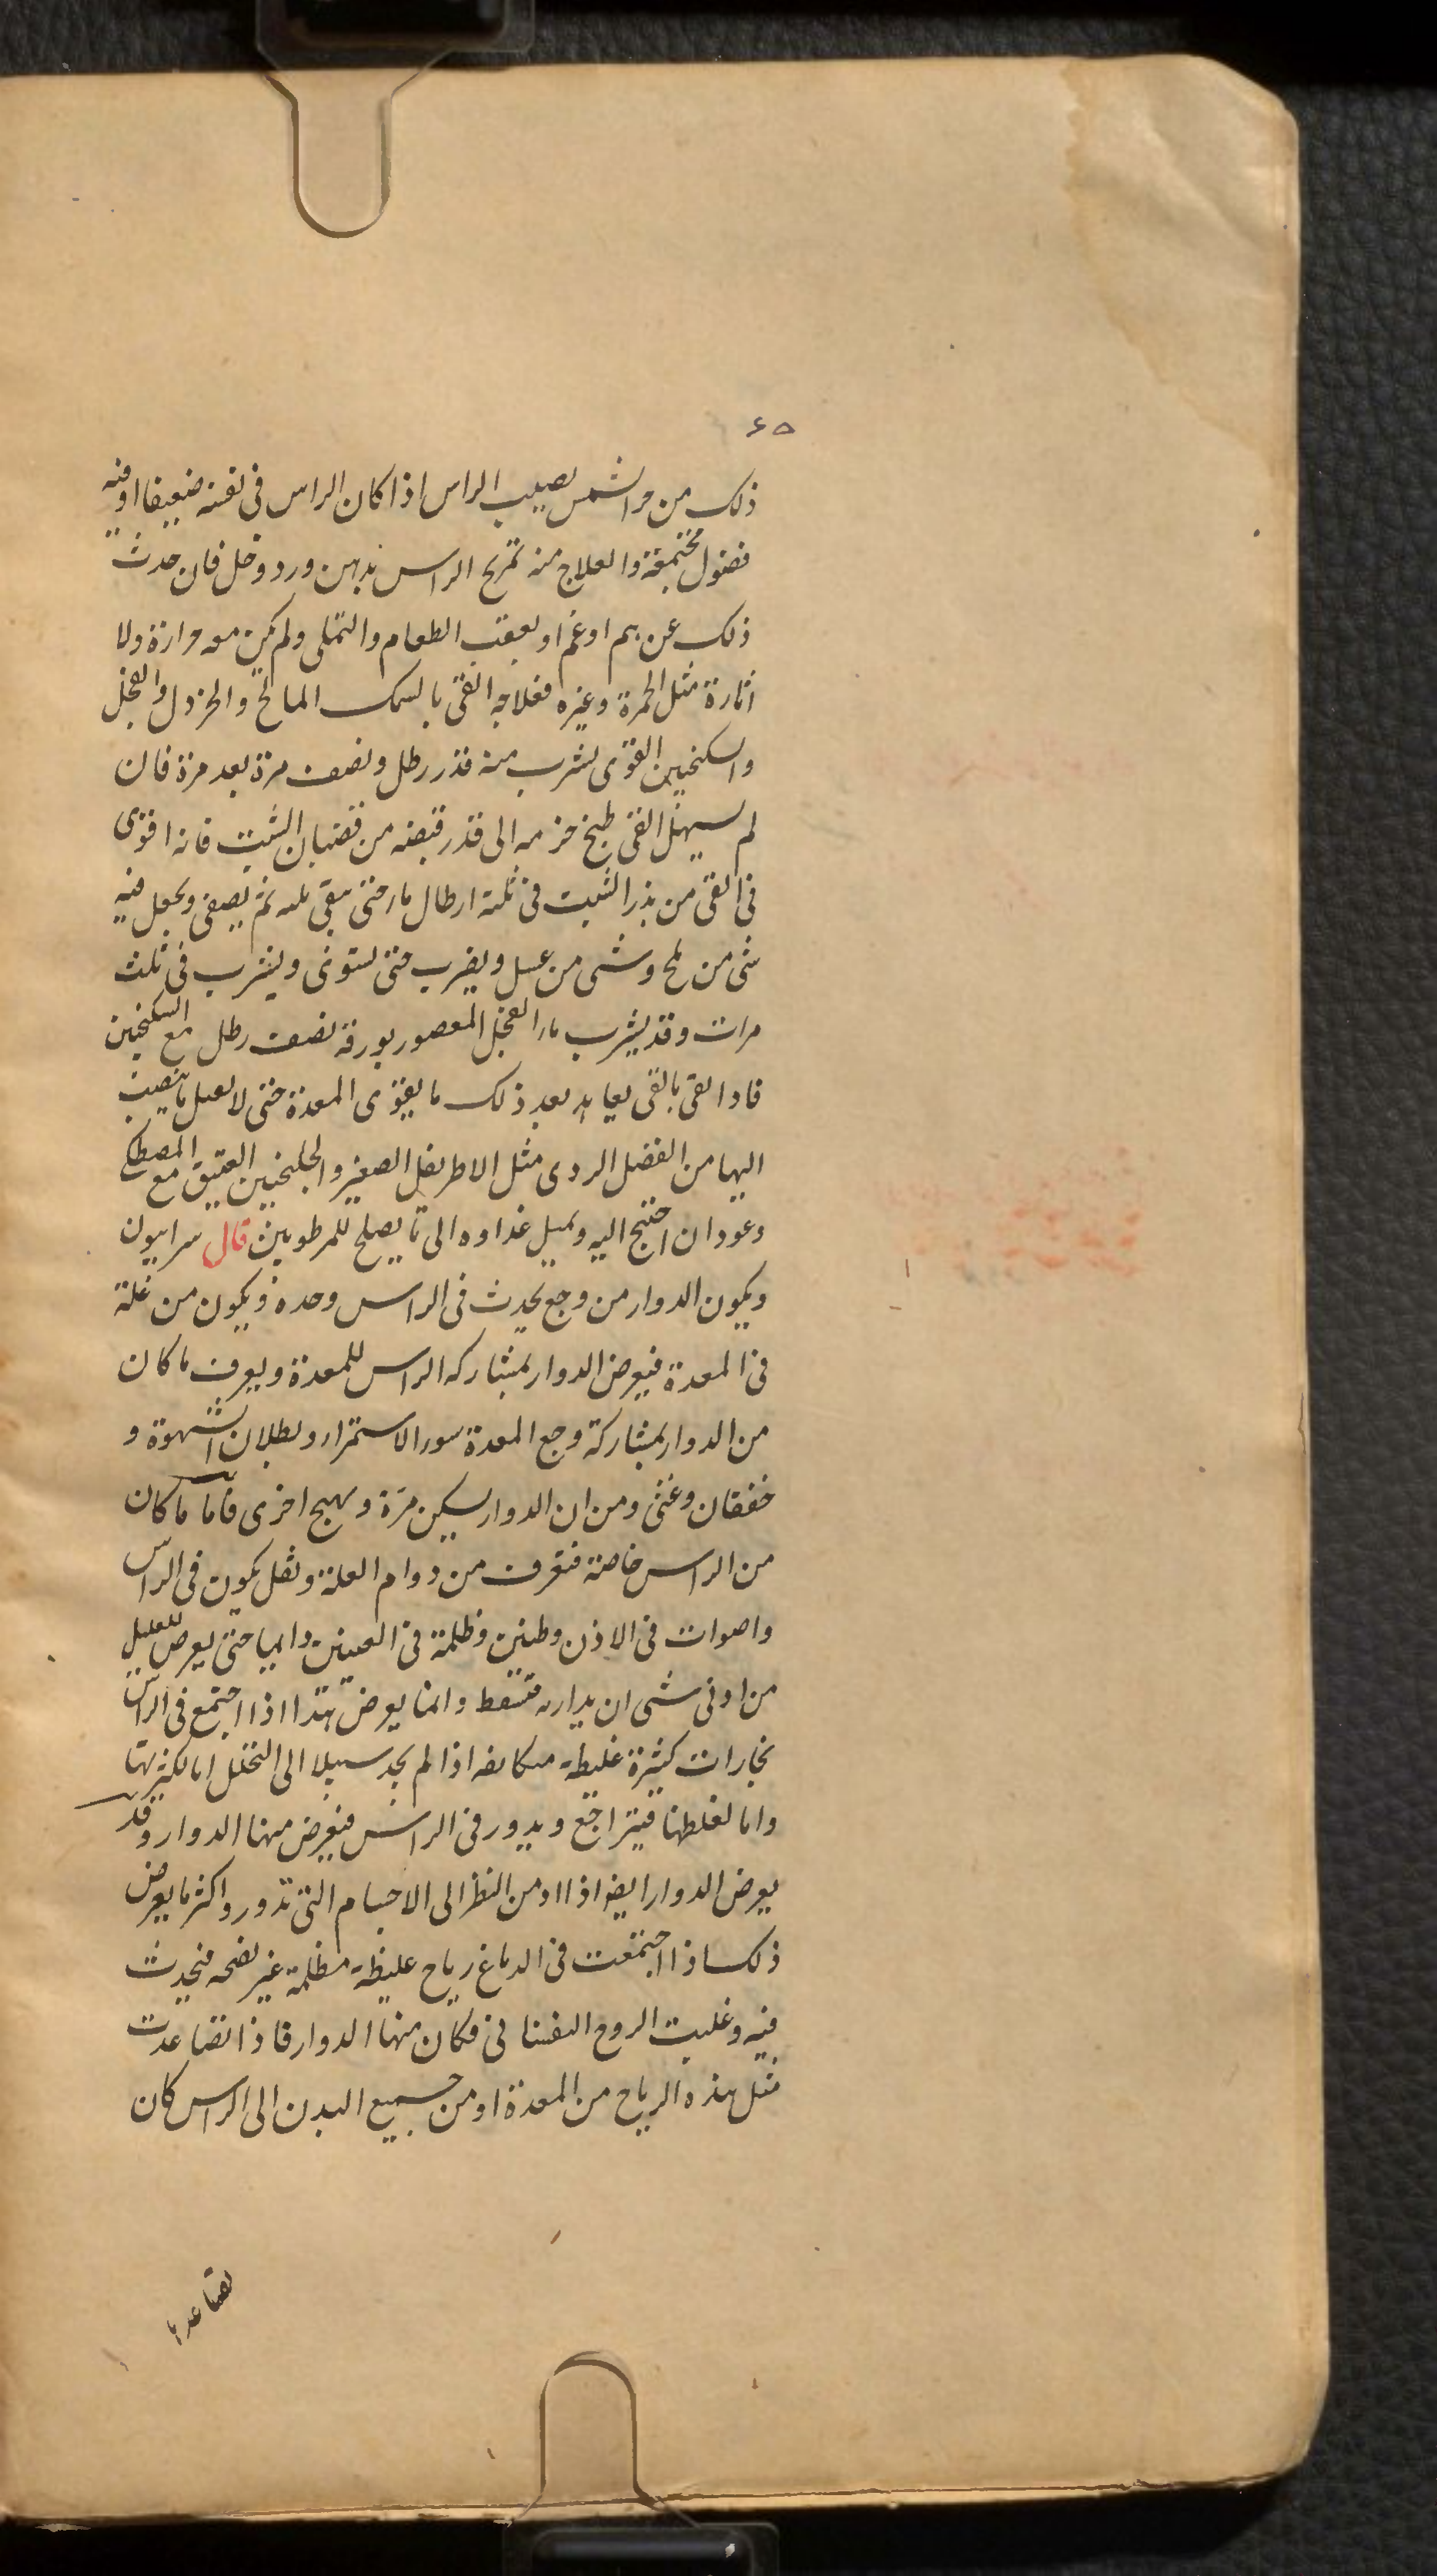 ٦٥
ذلك من حر الشمس يصيب الراس اذا كان الراس فى نفسه ضعيفا او فيه
فضول مجتمعة والعلاج منه تمريخ الراس بدهن ورد وخل فان حدث
ذلك عن هم او غم او بعقب الطعام والتملى ولم يكن معه حرارة ولا
اثارة مثل الحمرة وغيره فعلاجه القى بالسمك المالح والخردل والفجل
والسكنجبين القوى يشرب منه قدر رطل ونصف مرة بعد مرة فان
لم يسهل القى طبخ حزمه الى قدر قبضه من قضبان الشبت فانه اقوى
فى القى من بذر الشبت فى ثلثة ارطال ماء حتى يبقى ثلثه ثم يصفى ويجعل فيه
شى من ملح وشى من عسل ويضرب حتى يستوى ويشرب فى ثلث
مرات وقد يشرب ماء الفجل المعصور بورقه نصف رطل مع السكنجبين
فاذا نقى بالقى يعاهد بعد ذلك ما يقوى المعدة حتى لا يقبل ما ينصب
اليها من الفضل الردى مثل الاطريفل الصغير والجلنجبين العتيق مع المصطكى
وعود ان احتيج اليه ويميل غداوه الى ما يصلح للمرطوبين قال سرابيون
ويكون الدوار من وجع يحدث فى الراس وحده ويكون من علة
فى المعدة فيعرض الدوار بمشاركه الراس للمعدة ويعرف ما كان
من الدوار بمشاركة وجع المعدة سوء الاستمراء وبطلان الشهوة و
خفقان وغثى ومن ان الدوار يسكن مرة ويهيج اخرى فاما ما كان
من الراس خاصة فتعرف من دوام العلة وثقل يكون فى الراس
واصوات فى الاذن وطنين وظلمة فى العينين دايما حتى يعرض للعليل
من ادنى شى ان يدار به فتسقط وانما يعرض هذا اذا اجتمع فى الراس
بخارات كثيرة غليظه متكاثفه اذا لم يجد سبيلا الى التحلل اما لكثرتها
واما لغلظها فيتراجع ويدور فى الراس فيعرض منها الدوار وقد
يعرض الدوار ايضا اذا ادمن النظر الى الاجسام التى تدور واكثر ما يعرض
ذلك اذا اجتمعت فى الدماغ رياح غليظة مظلمة غير نضجه فيحدث
فيه وغلبت الروح النفسانى فكان منها الدوار فاذا تصاعدت
مثل هذه الرياح من المعدة او من جميع البدن الى الراس كان